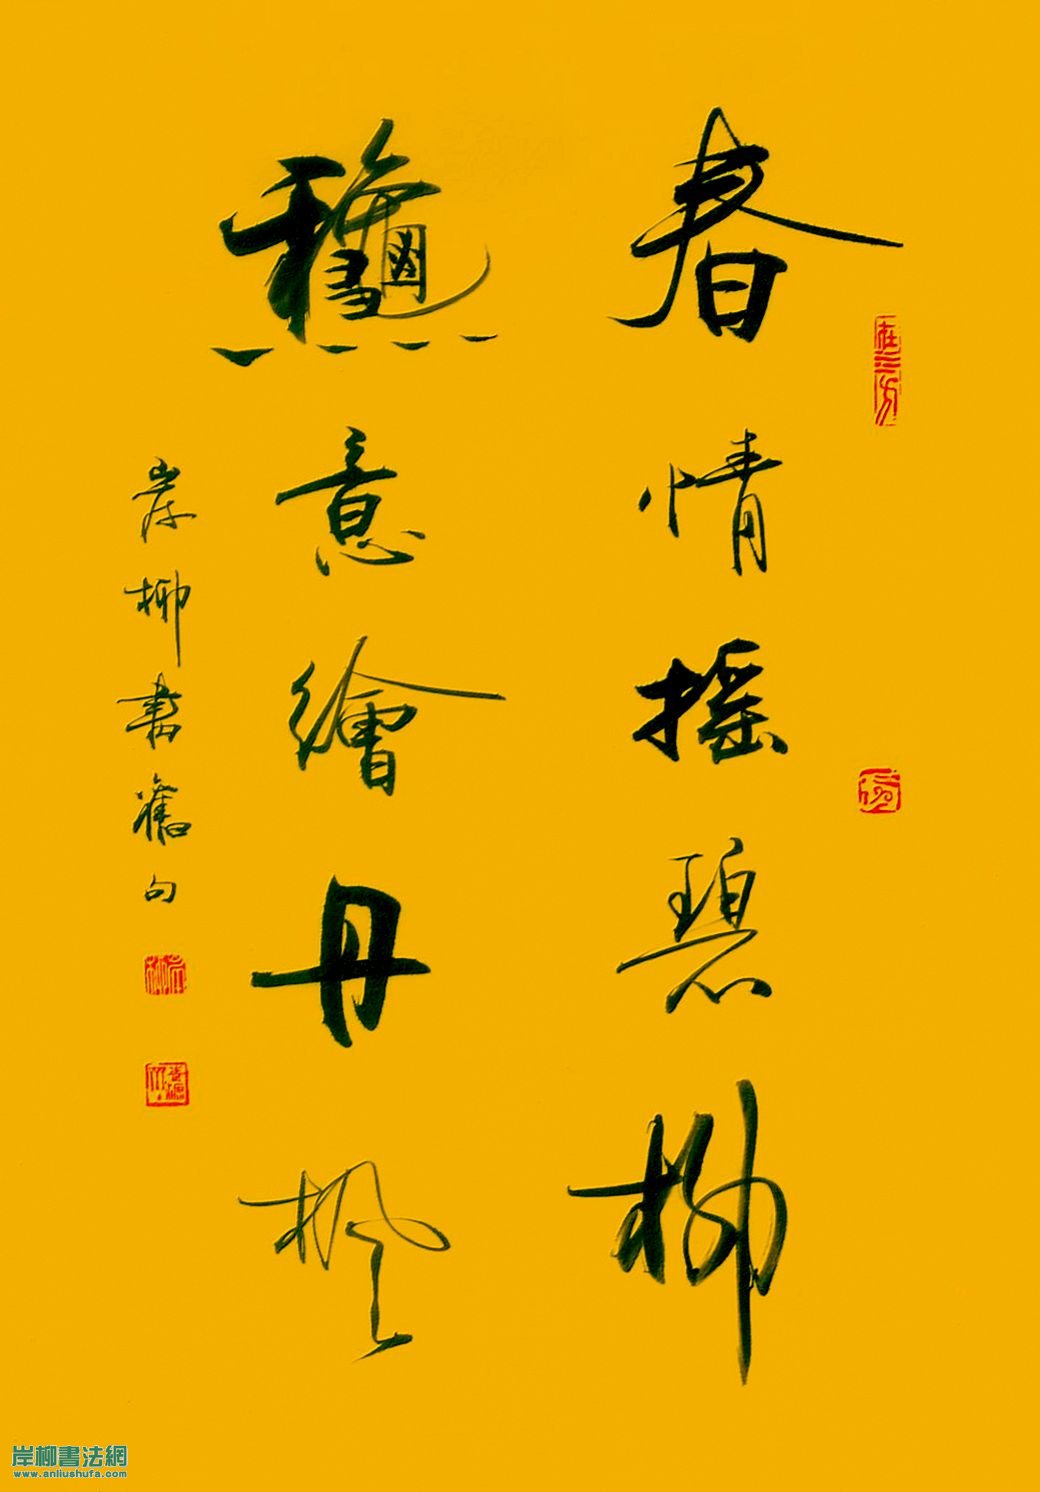 春情搖碧柳
龝意繪丹楓
岸柳書舊句
岸柳書法網
www.anliushufa.com